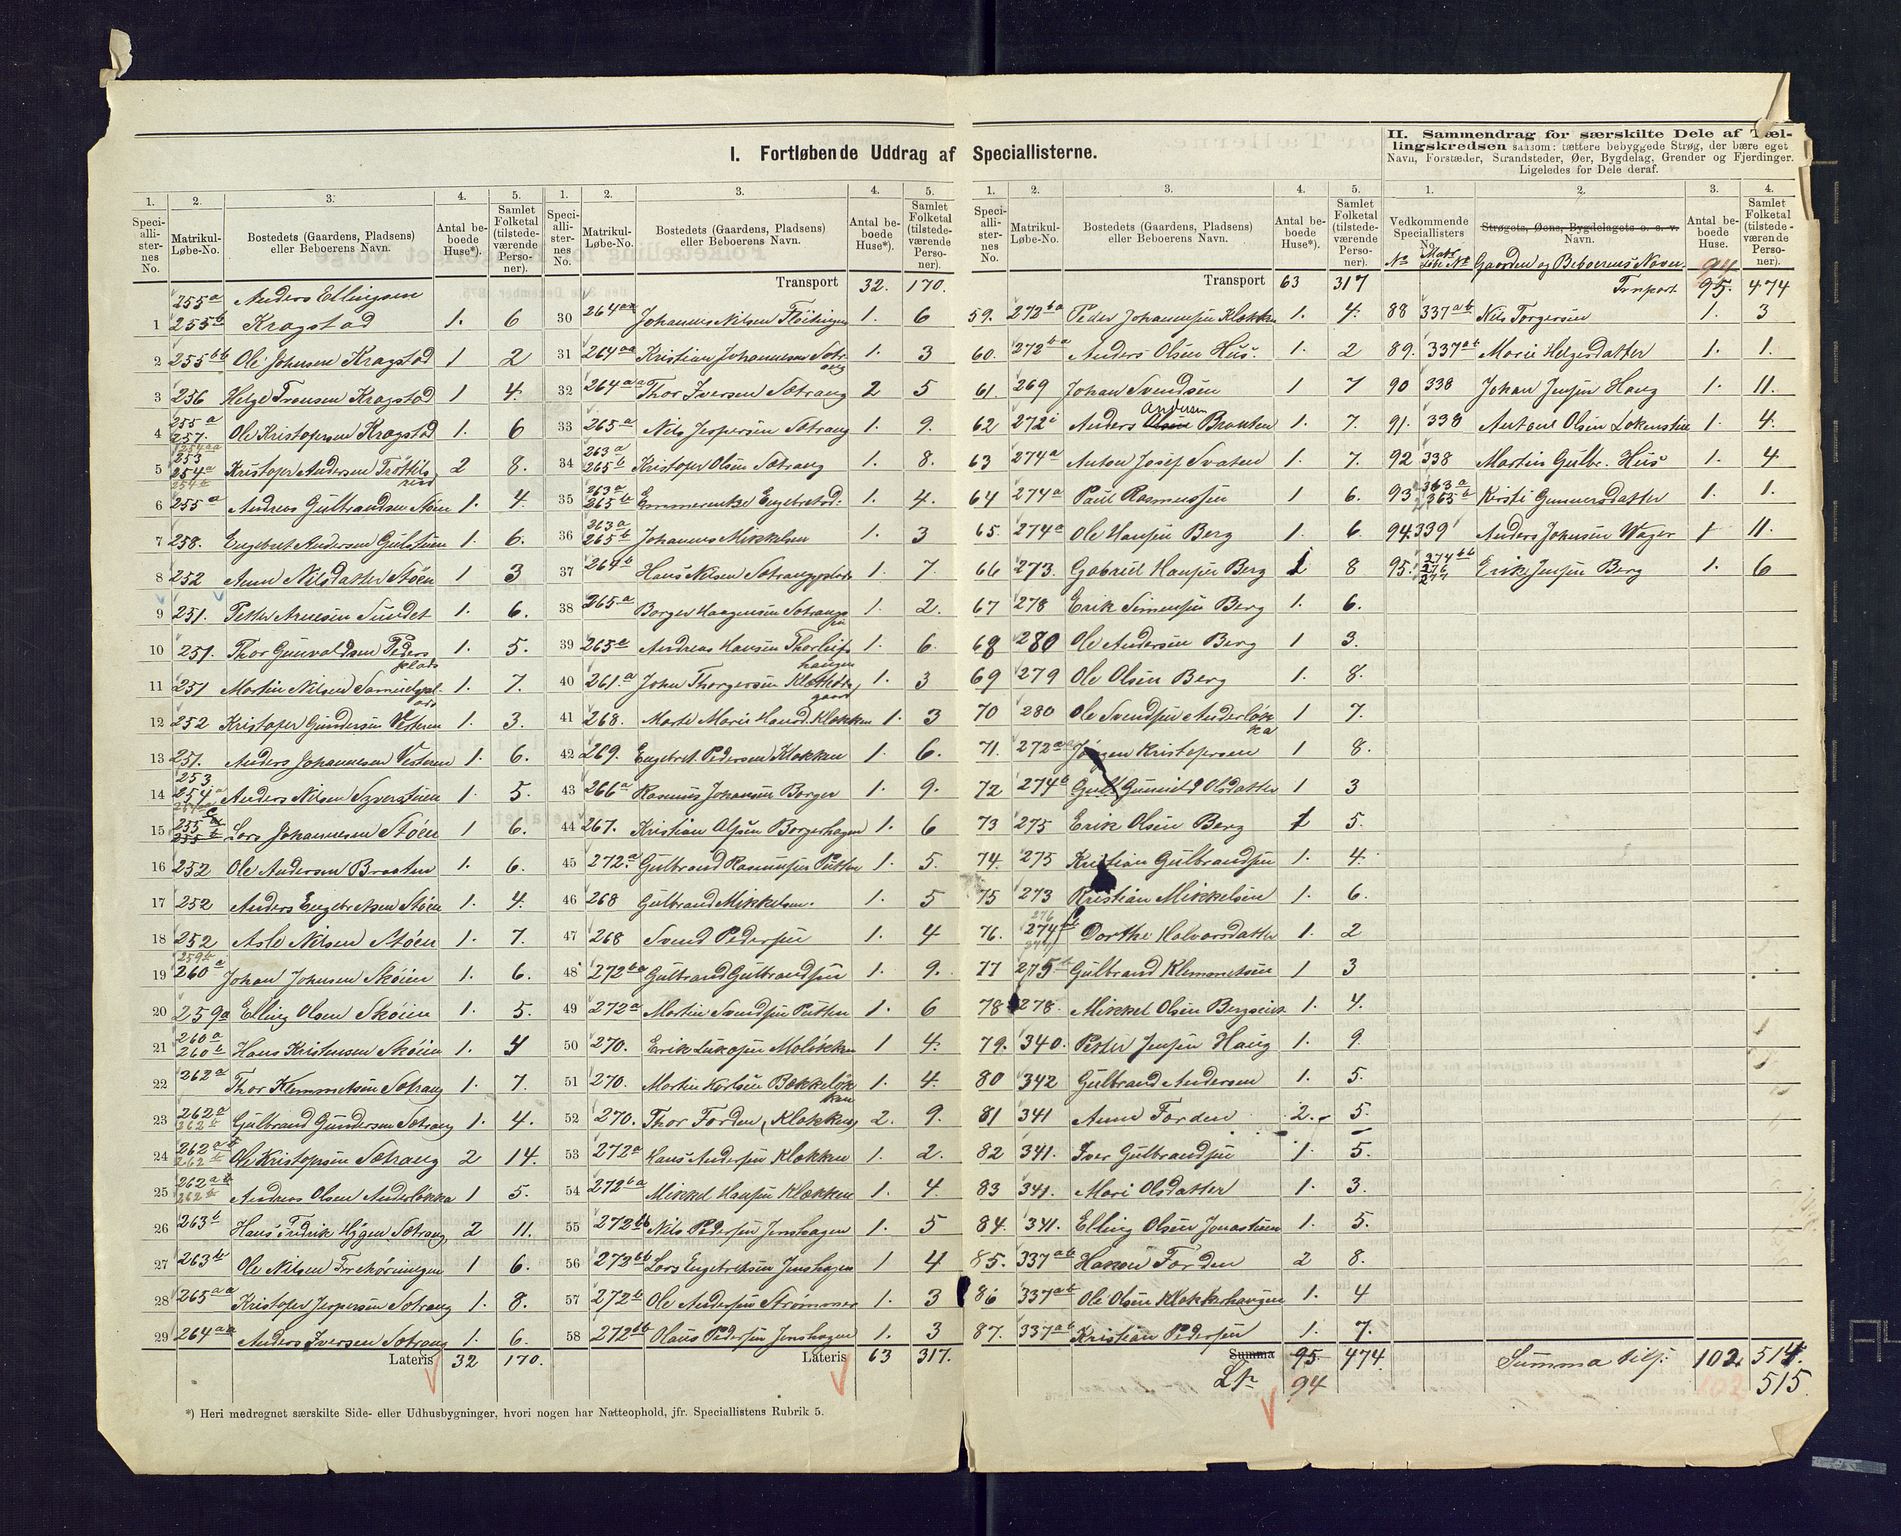 I. Fortløbende Uddrag af Speciallisterne.
II. Sammendrag for særskilte Dele af Tæl-
lingskredsen saasom: tættere bebyggede Strøg, der bære eget
Navn, Forstæder, Strandsteder, Øer, Bygdelag, Grender og Fjerdinger.
Ligeledes for Dele deraf.
1. 2. 3. 4. 5.
Speci-alli-ster-nes No. Matrikul-Løbe-No. Bostedets (Gaardens, Pladsens) eller Beboerens Navn. Antal be-boede Huse*). Samlet Folketal (tilstede-værende Perso-ner).
255a Anders Ellingsen
1 255b Kragstad 1. 6
2 255bb Ole Johnsen Kragstad 1 2
3 256 Helge Fransen Kragstad 1 4.
4 255a 257. Ole Kristofersen Kragstad 1. 6
5 253 254a Kristofer Andersen 2 8.
6 255a Andreas Gulbrandsen Støen 1. 4.
7 258. Engebret Andersen Gulstuen 1. 6.
8 252 Ann Nilsdatter Støen 1 3
9 251. Petter Arnesen Sundet 1. 6.
10 251. Thor Gunvaldsen Peders plads 1. 5.
11 251 Martin Nilsen 1. 7.
12 252 Kristofer Gundersen Vesteren 1. 3.
13 251. Anders Johannesen Vesteren 1. 6.
14 253 254a Anders Nilsen Syverstuen 1. 5.
15 255 Lars Johannesen Støen 1 6.
16 252 Ole Andersen Braaten 1. 6.
17 252 Anders Engebretsen Støen 1. 4.
18 252 Asle Nilsen Støen 1. 7.
19 259b 260a Johan Johnsen Skøien 1. 6.
20 259a Elling Olsen Skøien 1. 5.
21 260a 260b Hans Kristensen Skøien 1. 4
22 262a Thor Klemmetsen Sætrang 1. 7.
23 262a 262b Gulbrand Gundersen Sætrang 1. 4.
24 262ab 262b Ole Kristofersen Sætrang 2 14.
25 262ab 262b Andreas Olsen Anderløkka 1 5.
26 263b Hans Fredrik Hygen Sætrang 2 11.
27 263b Ole Nilsen 1 6.
28 265aa Kristofer Jespersen Sætrang 1. 8.
29 264aa Anders Iversen Sætrang 1. 6.
Lateris 32 170.
1. 2. 3. 4. 5.
Speci-alli-ster-nes No. Matrikul-Løbe-No. Bostedets (Gaardens, Pladsens) eller Beboerens Navn. Antal be-boede Huse*). Samlet Folketal (tilstede-værende Perso-ner).
Transport 32. 170.
30 264aa Johannes Nilsen 1. 6
31 264aa Kristian Johannesen Sætr-ang 1. 3
32 264aa Thor Iversen Sætrang 2 5
33 265a Nils Jespersen Sætrang 1. 9.
34 263a 265b Kristofer Olsen Sætrang 1. 8.
35 263a 265b Emmerentze Engebretsd. 1. 4.
36 263a 265b Johannes Mikkelsen 1. 3
37 264b Hans Nilsen 1. 7
38 265a Borger Haagensen 1. 2.
39 265a Andreas Hansen Thorleifs haugen 1. 6.
40 261.a John Thorgersen 1. 3
41 268. Marte Marie Hansd. Klækken 1. 3
42 269. Engebret Pedersen Klækken 1. 6.
43 266a Rasmus Johansen Borger 1. 9.
44 267. Kristian Olsen Borgerhagen 1. 6
45 272a. Gulbrand Rasmussen Putten 1. 5
46 268 Gulbrand Mikkelsen. 1. 5
47 268 Svend Pedersen 1. 4
48 272ba Gulbrand Gulbrandsen 1. 9.
49 272a Martin Svendsen Putten 1. 6
50 270. Erik Lukasen Moløkken 1 4.
51 270. Martin Karlsen Bækkeløk ken 1. 4.
52 270. Thor Forden, Klækken 2. 9.
53 272a Hans Andersen Klækken 1. 2.
54 272ba Mikkel Hansen Klækken 1. 4.
55 272bb Nils Pedersen Jenshagen 1. 5
56 272bb Lars Engebretsen Jenshagen 1 4
57 272b Ole Andersen Strømmen 1. 3
58 272bb Olaus Pedersen Jenshagen 1. 3
Lateris 63 317.
1. 2. 3. 4. 5.
Speci-alli-ster-nes No. Matrikul-Løbe-No. Bostedets (Gaardens, Pladsens) eller Beboerens Navn. Antal be-boede Huse*). Samlet Folketal (tilstede-værende Perso-ner).
Transport 63 317
59. 272ba Peder Johannesen Klækken 1. 4.
60. 272ba Anders Olsen Hus. 1. 2
61. 269 Johan Svendsen 1 7
62 272i Anders Olsen Andersen Braaten 1. 7.
63 274a Anton Josef Svaten 1. 7.
64 274a Paul Rasmussen 1 6.
65. 274a Ole Hansen Berg 1. 6.
66 273. Gabriel Hansen Berg 1 8
67 278 Erik Simensen Berg 1. 6.
68 280 Ole Andersen Berg 1 3.
69 279 Ole Olsen Berg 1. 8.
70 280 Ole Svendsen Anderløk ka 1 7.
71. 272a Jørgen Kristofersen 1 8.
72 274b Gunild Olsdatter 1 3
73 275 Erik Olsen Berg 1 5.
74. 275 Kristian Gulbrandsen 1. 4.
75 273 Kristian Mikkelsen 1. 6.
76. 276 274b 277 Dorthe Halvorsdatter 1. 2
77 275b Gulbrand Klemmetsen 1 3
78 278. Mikkel Olsen 1. 4.
79. 340. Petter Jensen Haug 1. 9.
80 342 Gulbrand Andersen 1. 5.
81 341 Anne Forden 2. 5.
82 341. Iver Gulbrandsen 1. 5.
83 341. Mari Olsdatter 1. 3.
84. 341. Elling Olsen Jonastuen 1. 5.
85. 337ab Hans Forden 2 8.
86 337ab Ole Olsen Klækkenhaugen 1. 4
87. 337ab Kristian Pedersen 1. 7.
Summa 95 474.
94
1. 2. 3. 4.
Vedkommende Speciallisters No. Strøgets, Øens, Bygdelagets o. s. v. Navn. Antal be-boede Huse. Samlet Folketal (tilstede-værende Perso-ner).
No Matr. løbe No Gaarden og Beboerens Navn. 94
Trnsport 95. 474
88 337ab Nils Torgersen 1. 3
89. 337ab Marie Helgesdatter 1. 1.
90 338 Johan Jensen Haug 1. 11.
91. 338 Antone Olsen 1. 4.
92 338 Martin Gulbr. Hus 1. 4
93 263a 265b Kirsti Gunnersdatter 1. 1.
94. 339 Anders Johnsen Wager 1 11.
95. 274bb 276 277 Erik Jensen Berg 1. 6
Summa 102. 514.
102 515.
*) Heri medregnet særskilte Side- eller Udhusbygninger, hvori nogen har Natteophold, jfr. Speciallistens Rubrik 5.